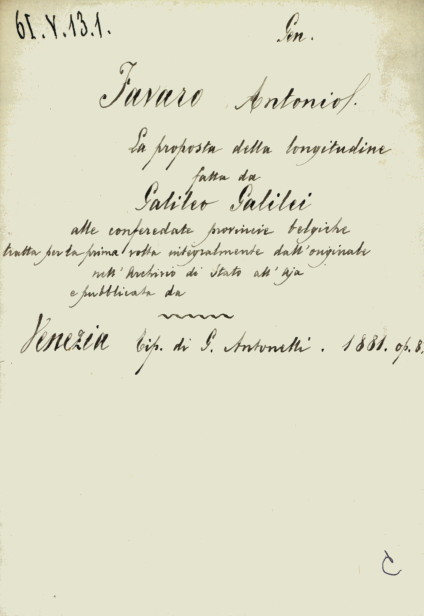 61.V.13.1.
Gen.
Favaro Antonio.
La proposta della longitudine
fatta da
Galileo Galilei
alle confederate provincie belgiche
tratta per la prima volta integralmente dall'originale
nell'Archivio di Stato all'Aja
e pubblicata da
Venezia Tip. di G. Antonelli. 1881. op. 8.